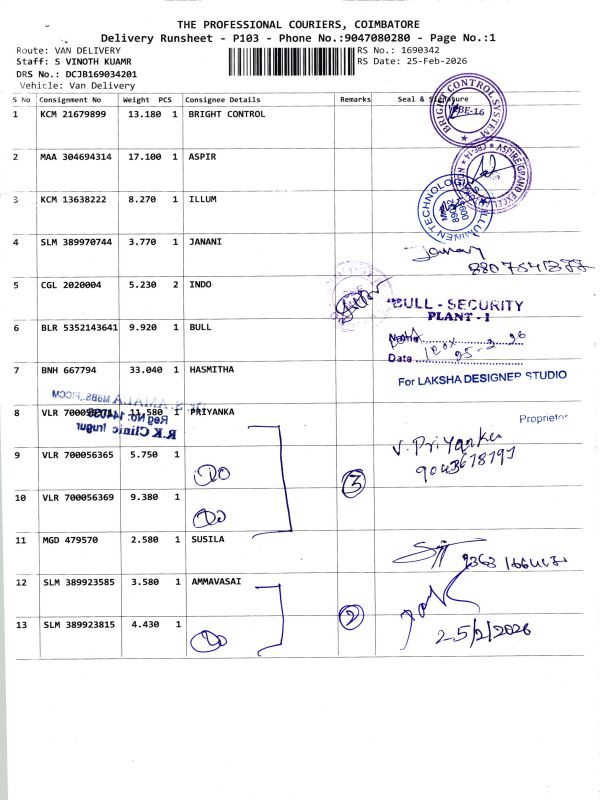 THE PROFESSIONAL COURIERS, COIMBATORE
Delivery Runsheet - P103 - Phone No.:9047080280 - Page No.:1
Route: VAN DELIVERY
RS No.: 1690342
Staff: S VINOTH KUAMR
RS Date: 25-Feb-2026
DRS No.: DCJB169034201
Vehicle: Van Delivery
S No Consignment No Weight PCS Consignee Details Remarks Seal & Signature
1 KCM 21679899 13.180 1 BRIGHT CONTROL
BRIGHT CONTROL SYSTEM
CBE-16
2 MAA 304694314 17.100 1 ASPIR
3 KCM 13638222 8.270 1 ILLUM
4 SLM 389970744 3.770 1 JANANI
5 CGL 2020004 5.230 2 INDO
BULL - SECURITY
PLANT - I
6 BLR 5352143641 9.920 1 BULL
Name
Date 25-2-26
7 BNH 667794 33.040 1 HASMITHA
For LAKSHA DESIGNER STUDIO
Proprietor
8 VLR 11.580 1 PRIYANKA
R.K Clinic Irugur
V. Priyanka
9043678797
9 VLR 700056365 5.750 1
Do
3
10 VLR 700056369 9.380 1
Do
11 MGD 479570 2.580 1 SUSILA
12 SLM 389923585 3.580 1 AMMAVASAI
2
13 SLM 389923815 4.430 1
Do
25/2/2026